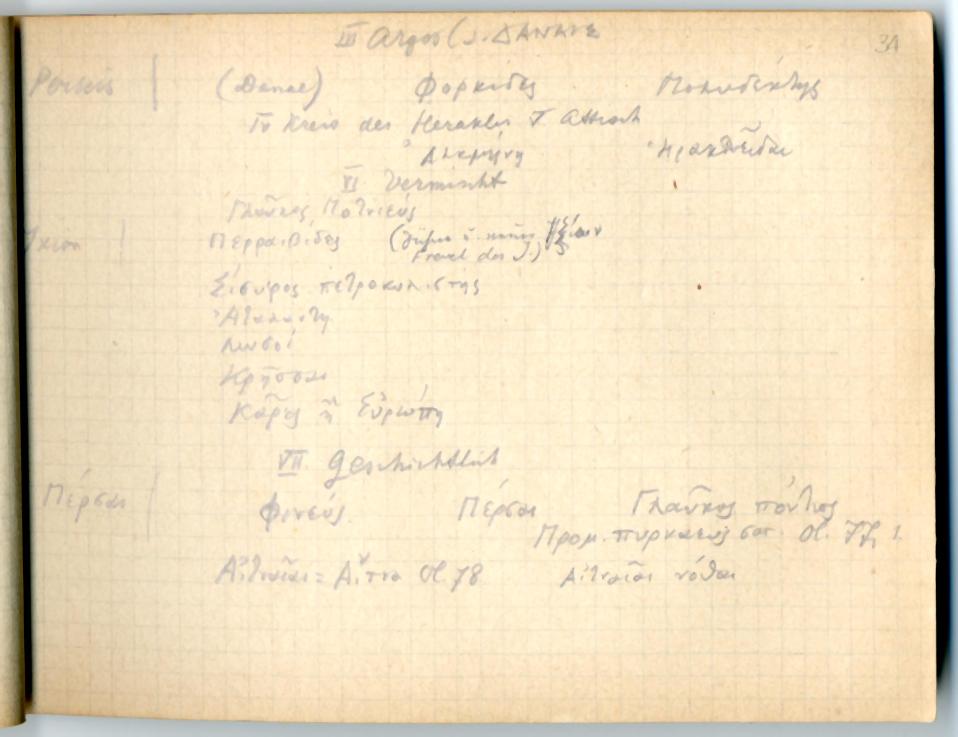 III Argos (s. ΔΑΝΑΙΣ
31
Perseis | (Danae) Φορκίδες Πολυδέκτης
IV Kreis des Herakles V Attisch
Ἀλκμήνη Ἡρακλεῖδαι
VI Vermischt
Γλαῦκος Ποτνιεύς
Ἰξίων | Περραιβίδες
Frevel des J.)
Σίσυφος πετροκυλιστής
Ἀταλάντη
Κρῆσσαι
Κᾶρες ἢ Εὐρώπη
VII Geschichtlich
Πέρσαι | Φινεύς Πέρσαι Γλαῦκος πόντιος
Προμ. πυρκαεύς sat. Ol. 77, 1.
Αἰτναῖαι = Αἴτνα Ol. 78 Αἰτναῖαι νόθοι